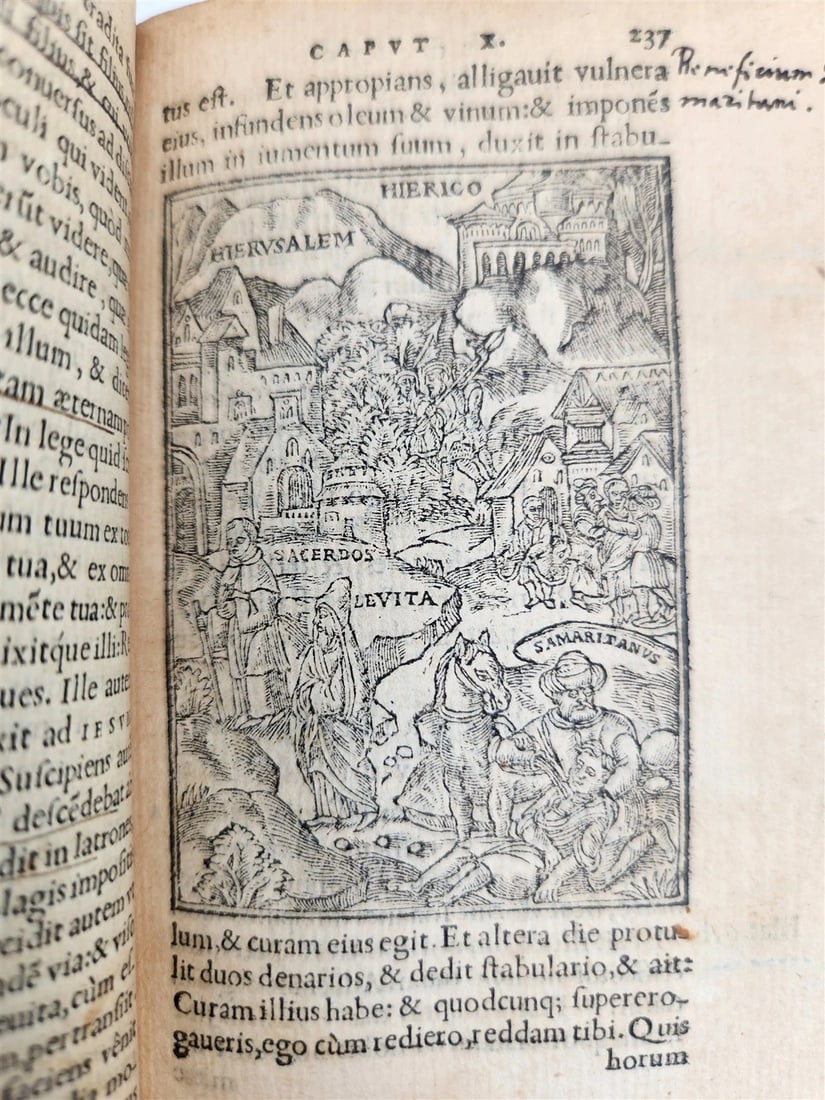 tradita
filius, & qui
conuersus ad
culi qui vident
vobis, quod
videre, quę
& audire, quę
ecce quidam
illum, & dicē
æternam
In lege quid
Ille respondens
tuum ex
tua, & ex
mēte tua: &
ixitq́ue illi:
ues. Ille
ad IESVM
Suscipiens
descēdebat
dit in latrones
lagis
cidit autem
via: &
cùm
pertransiit
faciens
CAPVT X. 237
tus est. Et appropians, alligauit vulnera
eius, infundens oleum & vinum: & imponēs
illum in iumentum suum, duxit in stabu-
Beneficium
maritani.
HIERICO
HIERVSALEM
SACERDOS
LEVITA
SAMARITANVS
lum, & curam eius egit. Et altera die protu-
lit duos denarios, & dedit stabulario, & ait:
Curam illius habe: & quodcunq; superero-
gaueris, ego cùm rediero, reddam tibi. Quis
horum